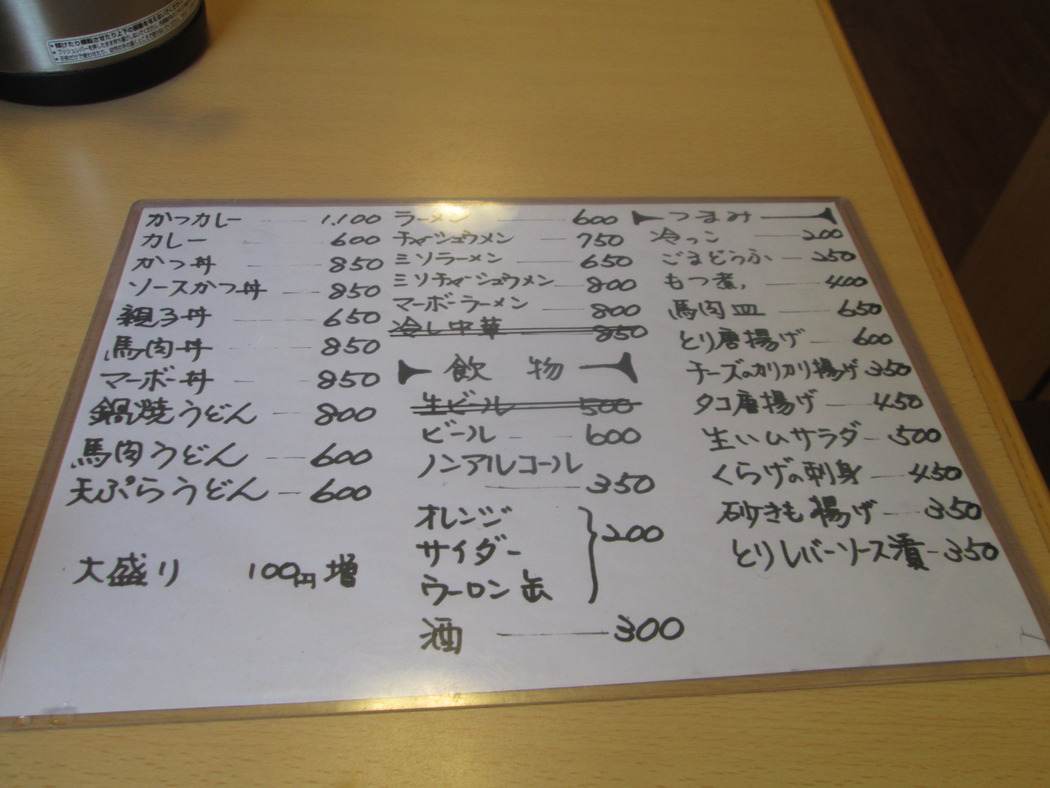 かつカレー 1.100
カレー 600
かつ丼 850
ソースかつ丼 850
親子丼 650
馬肉丼 850
マーボー丼 850
鍋焼うどん 800
馬肉うどん 600
天ぷらうどん 600
大盛り 100円増
ラーメン 600
チャーシュウメン 750
ミソラーメン 650
ミソチャーシュウメン 800
マーボーラーメン 800
冷し中華 850
飲物
生ビール 500
ビール 600
ノンアルコール
350
オレンジ
サイダー 200
ウーロン缶
酒 300
つまみ
冷っこ 200
ごまどうふ 250
もつ煮 400
馬肉皿 650
とり唐揚げ 600
チーズのカリカリ揚げ 350
タコ唐揚げ 450
生ハムサラダ 500
くらげの刺身 450
砂ぎも揚げ 350
とりレバーソース漬 350